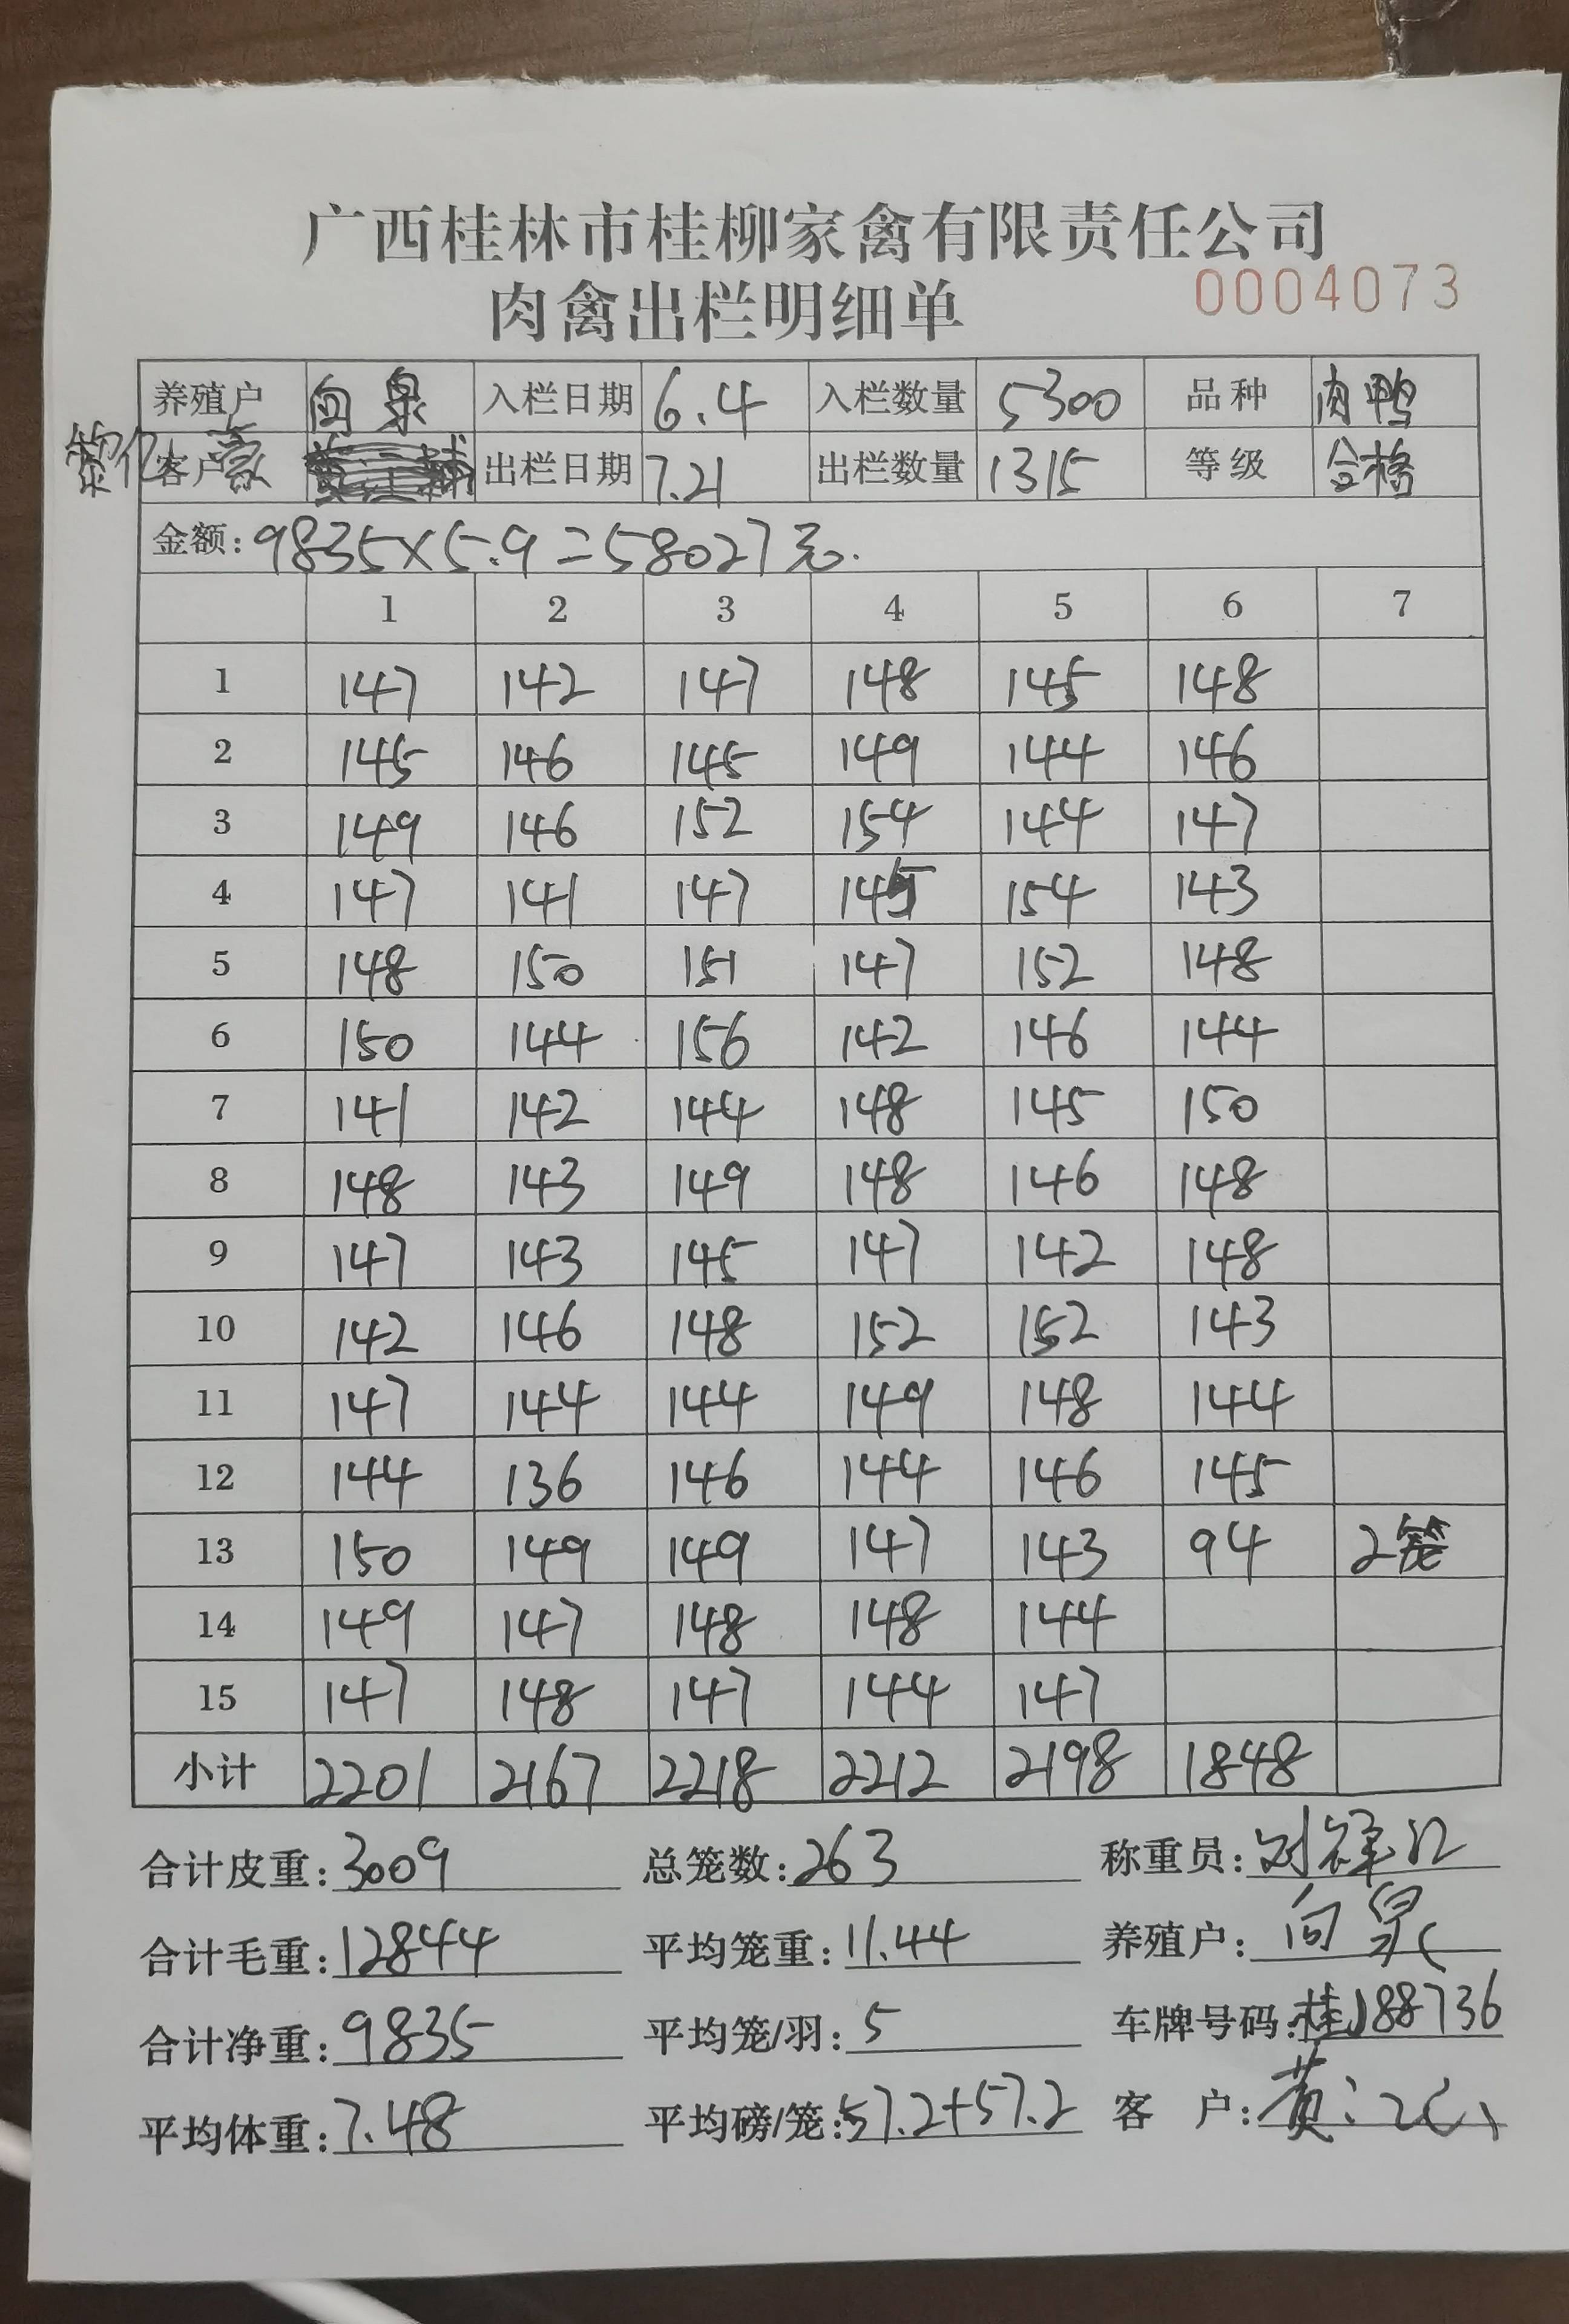 广西桂林市桂柳家禽有限责任公司
肉禽出栏明细单 0004073
养殖户 向泉 入栏日期 6.4 入栏数量 5300 品种 肉鸭
黎亿豪 客户 出栏日期 7.21 出栏数量 1315 等级 合格
金额:9835×5.9=58027元.
1 2 3 4 5 6 7
1 147 142 147 148 145 148
2 145 146 145 149 144 146
3 149 146 152 154 144 147
4 147 141 147 145 154 143
5 148 150 151 147 152 148
6 150 144 156 142 146 144
7 141 142 144 148 145 150
8 148 143 149 148 146 148
9 147 143 145 147 142 148
10 142 146 148 152 152 143
11 147 144 144 149 148 144
12 144 136 146 144 146 145
13 150 149 149 147 143 94 2笼
14 149 147 148 148 144
15 147 148 147 144 147
小计 2201 2167 2218 2212 2198 1848
合计皮重:3009 总笼数:263 称重员:刘祥江
合计毛重:12844 平均笼重:11.44 养殖户:向泉
合计净重:9835 平均笼/羽:5 车牌号码:桂J88736
平均体重:7.48 平均磅/笼:57.2+57.2 客户:黄